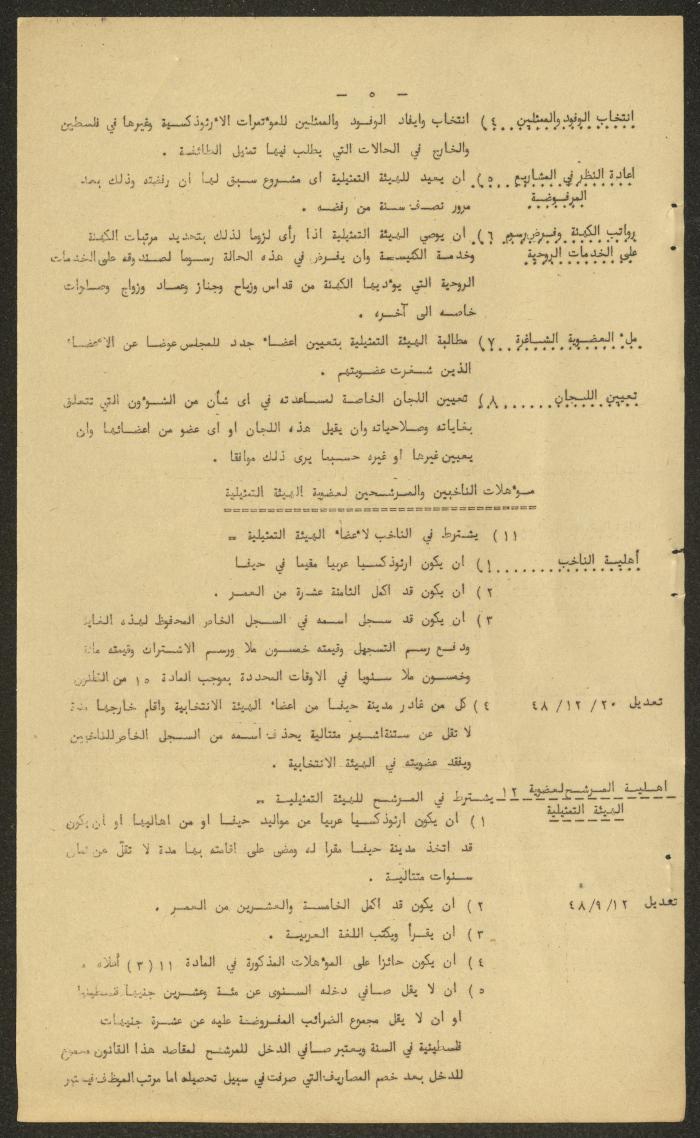 — ٥ —
انتخاب الوفود والممثلين ٤) انتخاب وايفاد الوفود والممثلين للموءتمرات الارثوذكسية وغيرها في فلسطين
والخارج في الحالات التي يطلب فيها تمثيل الطائفة .
اعادة النظر في المشاريع ٥) ان يعيد للهيئة التمثيلية اى مشروع سبق لها ان رفضته وذلك بعد
المرفوضة مرور نصف سنة من رفضه .
رواتب الكهنة وفرض رسم ٦) ان يوصي الهيئة التمثيلية اذا رأى لزوما لذلك بتحديد مرتبات الكهنة
على الخدمات الروحية وخدمة الكنيسة وان يفرض في هذه الحالة رسوما لصندوقه على الخدمات
الروحية التي يوءديها الكهنة من قداس وزياح وجناز وعماد وزواج وصلوات
خاصه الى آخره .
ملء العضوية الشاغرة ٧) مطالبة الهيئة التمثيلية بتعيين اعضاء جدد للمجلس عوضا عن الاعضاء
الذين شغرت عضويتهم .
تعيين اللجان ٨) تعيين اللجان الخاصة لمساعدته في اى شأن من الشوءون التي تتعلق
بغاياته وصلاحياته وان يقيل هذه اللجان او اى عضو من اعضائها وان
يعيين غيرها او غيره حسبما يرى ذلك موافقا .
موءهلات الناخبين والمرشحين لعضوية الهيئة التمثيلية
١١) يشترط في الناخب لاعضاء الهيئة التمثيلية =
أهلية الناخب ١) ان يكون ارثوذكسيا عربيا مقيما في حيفا
٢) ان يكون قد اكمل الثامنة عشرة من العمر .
٣) ان يكون قد سجل اسمه في السجل الخاص المحفوظ لهذه الغاية
ودفع رسم التسجيل وقيمته خمسون ملا ورسم الاشتراك وقيمته مائة
وخمسون ملا سنويا في الاوقات المحددة بموجب المادة ١٥ من القانون
تعديل ٢٠/١٢/٤٨ ٤) كل من غادر مدينة حيفا من اعضاء الهيئة الانتخابية واقام خارجها مدة
لا تقل عن ستة اشهر متتالية يحذف اسمه من السجل الخاص للناخبين
ويفقد عضويته في الهيئة الانتخابية .
اهلية المرشح لعضوية ١٢ يشترط في المرشح للهيئة التمثيلية =
الهيئة التمثيلية ١) ان يكون ارثوذكسيا عربيا من مواليد حيفا او من اهاليها او ان يكون
قد اتخذ مدينة حيفا مقرا له ومضى على اقامته بها مدة لا تقل عن ثمان
سنوات متتالية .
تعديل ١٢/٩/٤٨ ٢) ان يكون قد اكمل الخامسة والعشرين من العمر .
٣) ان يقرأ ويكتب اللغة العربية .
٤) ان يكون حائزا على الموءهلات المذكورة في المادة ١١ (٣) أعلاه .
٥) ان لا يقل صافي دخله السنوى عن مئة وعشرين جنيها فلسطينيا
او ان لا يقل مجموع الضرائب المفروضة عليه عن عشرة جنيهات
فلسطينية في السنة ويعتبر صافي الدخل للمرشح لمقاصد هذا القانون مجموع
للدخل بعد خصم المصاريف التي صرفت في سبيل تحصيله اما مرتب الموظف